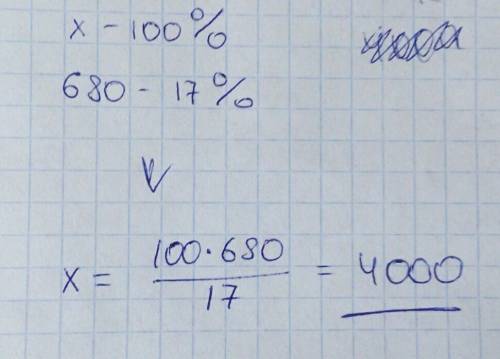 x - 100%
680 - 17%
x = 100·680 / 17 = 4000